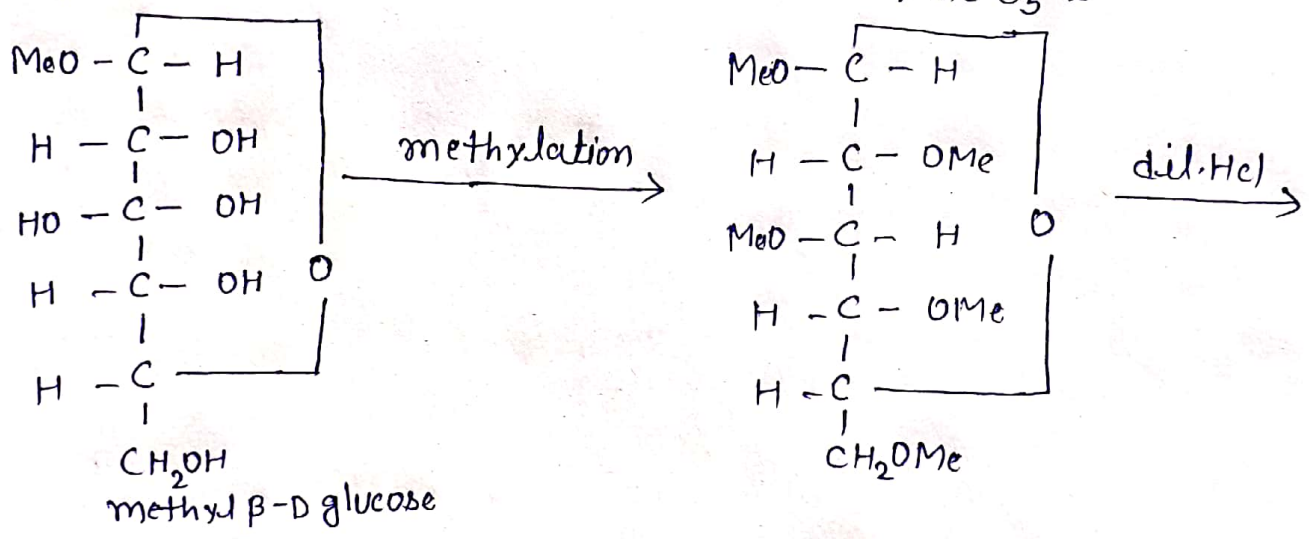 MeO - C - H
H - C - OH
HO - C - OH
H - C - OH
O
H - C
CH₂OH
methyl β-D glucose
methylation
MeO - C - H
H - C - OMe
MeO - C - H
O
H - C - OMe
H - C
CH₂OMe
dil. HCl